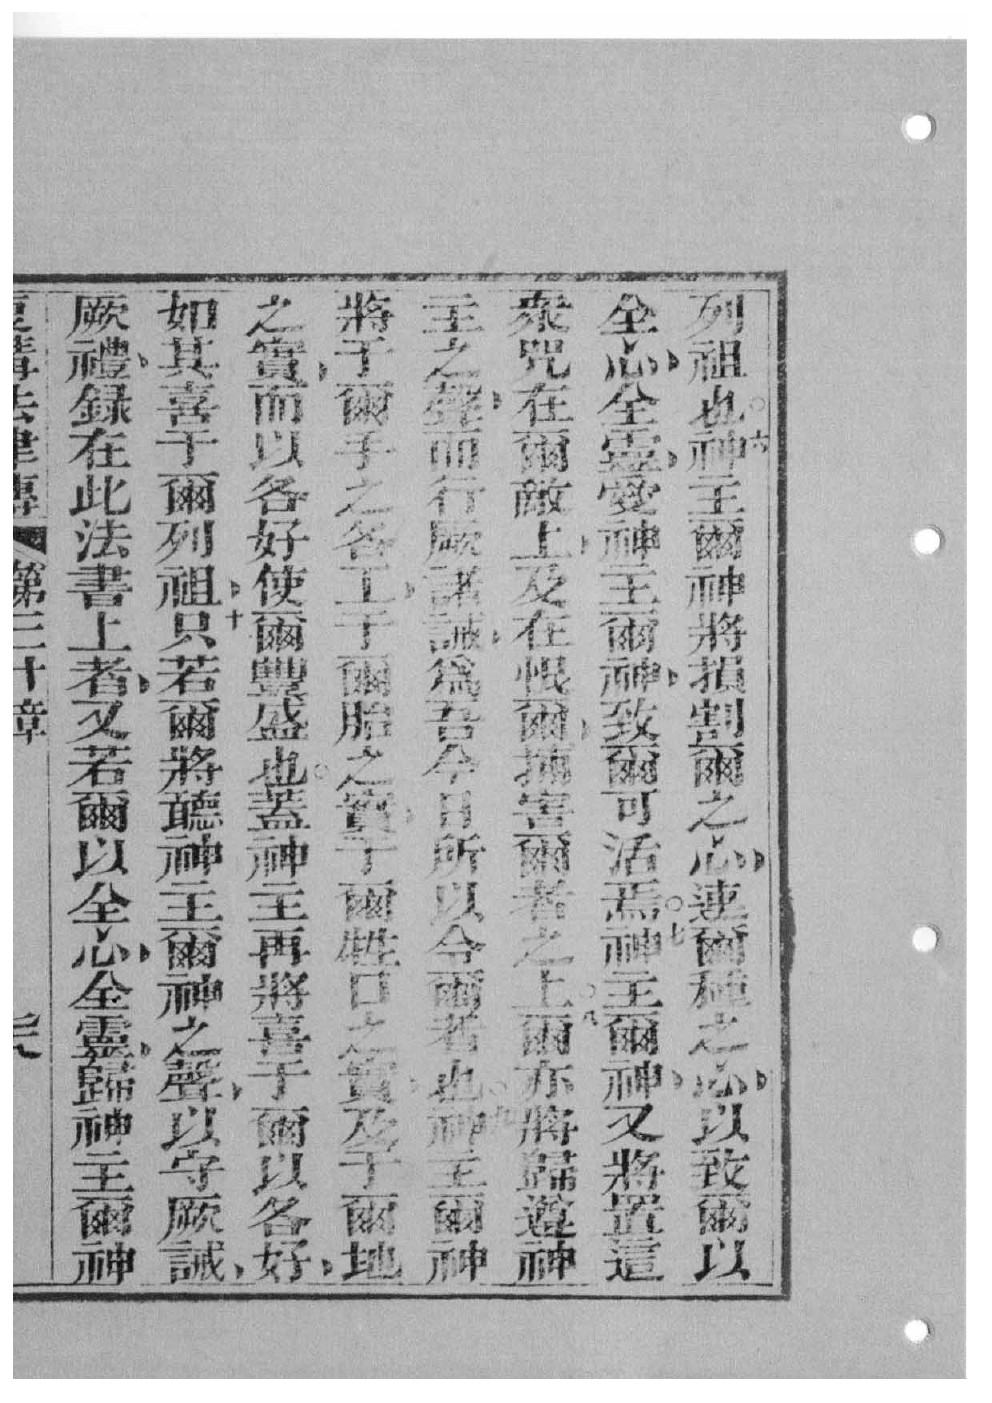 列祖也○六神主爾神將損割爾之心連爾種之心以致爾以
全心全靈愛神主爾神致爾可活焉○七神主爾神又將置這
衆咒在爾敵上及在恨爾捕害爾者之上○八爾亦將歸遵神
主之聲而行厥諸誡為吾今日所以令爾者也○九神主爾神
將于爾手之各工于爾胎之實于爾牲口之實及于爾地
之實而以各好使爾豐盛也○蓋神主再將喜于爾以各好
如其喜于爾列祖十只若爾將聽神主爾神之聲以守厥誡
厥禮錄在此法書上者又若爾以全心全靈歸神主爾神
復講法律傳 第三十章